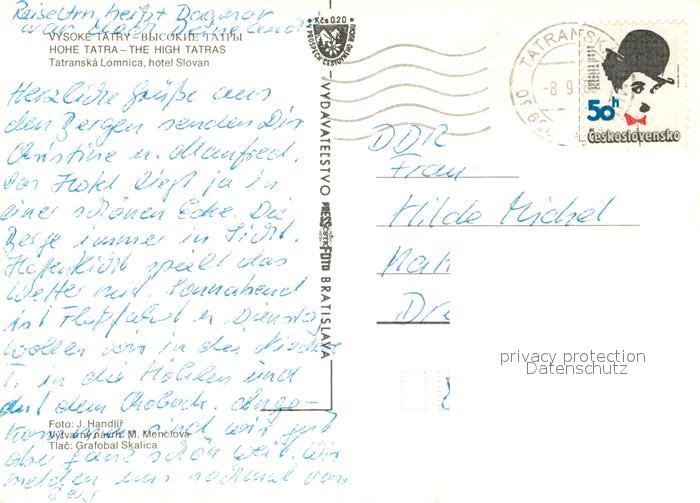 Reiseltrn heißt Dagmar
VYSOKÉ TATRY – ВЫСОКИЕ ТАТРЫ
HOHE TATRA – THE HIGH TATRAS
Tatranská Lomnica, hotel Slovan
Herzliche Grüße aus
den Bergen senden Dir
Christine u. Manfred.
Das Hotel liegt ja in
einer schönen Ecke. Die
Berge immer in Sicht.
Hoffentlich spielt das
Wetter mit. Sonnabend
ist Floßfahrt u. Dienstag
wollen wir in die Niedere
T. in die Höhlen und
auf dem Chobock.
sind wir gut
aber ganz schön
melden uns nochmal von
Foto: J. Handlíř
Výtvarný návrh: M. Menclová
Tlač: Grafobal Skalica
Kčs 0,20
PROSPECH CESTOVNÉHO RUCHU
VYDAVATEĽSTVO PRESSFOTO BRATISLAVA
TATRANSK
-8.9.
50h
Československo
DDR
Frau
Hilde Michel
Dr
privacy protection
Datenschutz